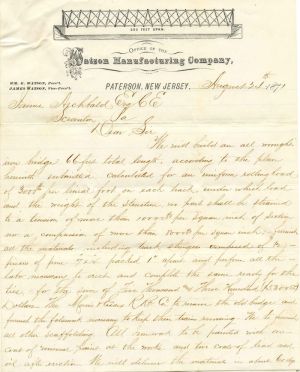 200 FEET SPAN.
OFFICE OF THE
Watson Manufacturing Company,
WM. G. WATSON, Pres't.
JAMES WATSON, Vice-Prest.
PATERSON, NEW JERSEY,
August 24th 1871
James Archbald Esq C.E.
Scranton Pa
Dear Sir
We will build an all wrought
iron bridge 66 feet total length, according to the plan
herewith calculated for an uniform rolling load
of 3000 lbs per lineal foot on each track, under which load
and the weight of the structure no part shall be strained
to a tension of more than 10000 lbs per square inch of section
or a compression of more than 8000 lbs per square inch
all the materials, including track stringers composed of
pieces of pine packed 1" apart and perform all the
labor necessary to erect and complete the same ready for the
ties, for the sum of Three Thousand and Three Hundred
Dollars the R.R. Co to remove the old bridge and
furnish the falsework necessary to keep their trains running. We to furnish
all other scaffolding. All ironwork to be painted with one
coat of paint at the works and two coats of lead and
oil after erection. We will deliver the material in about